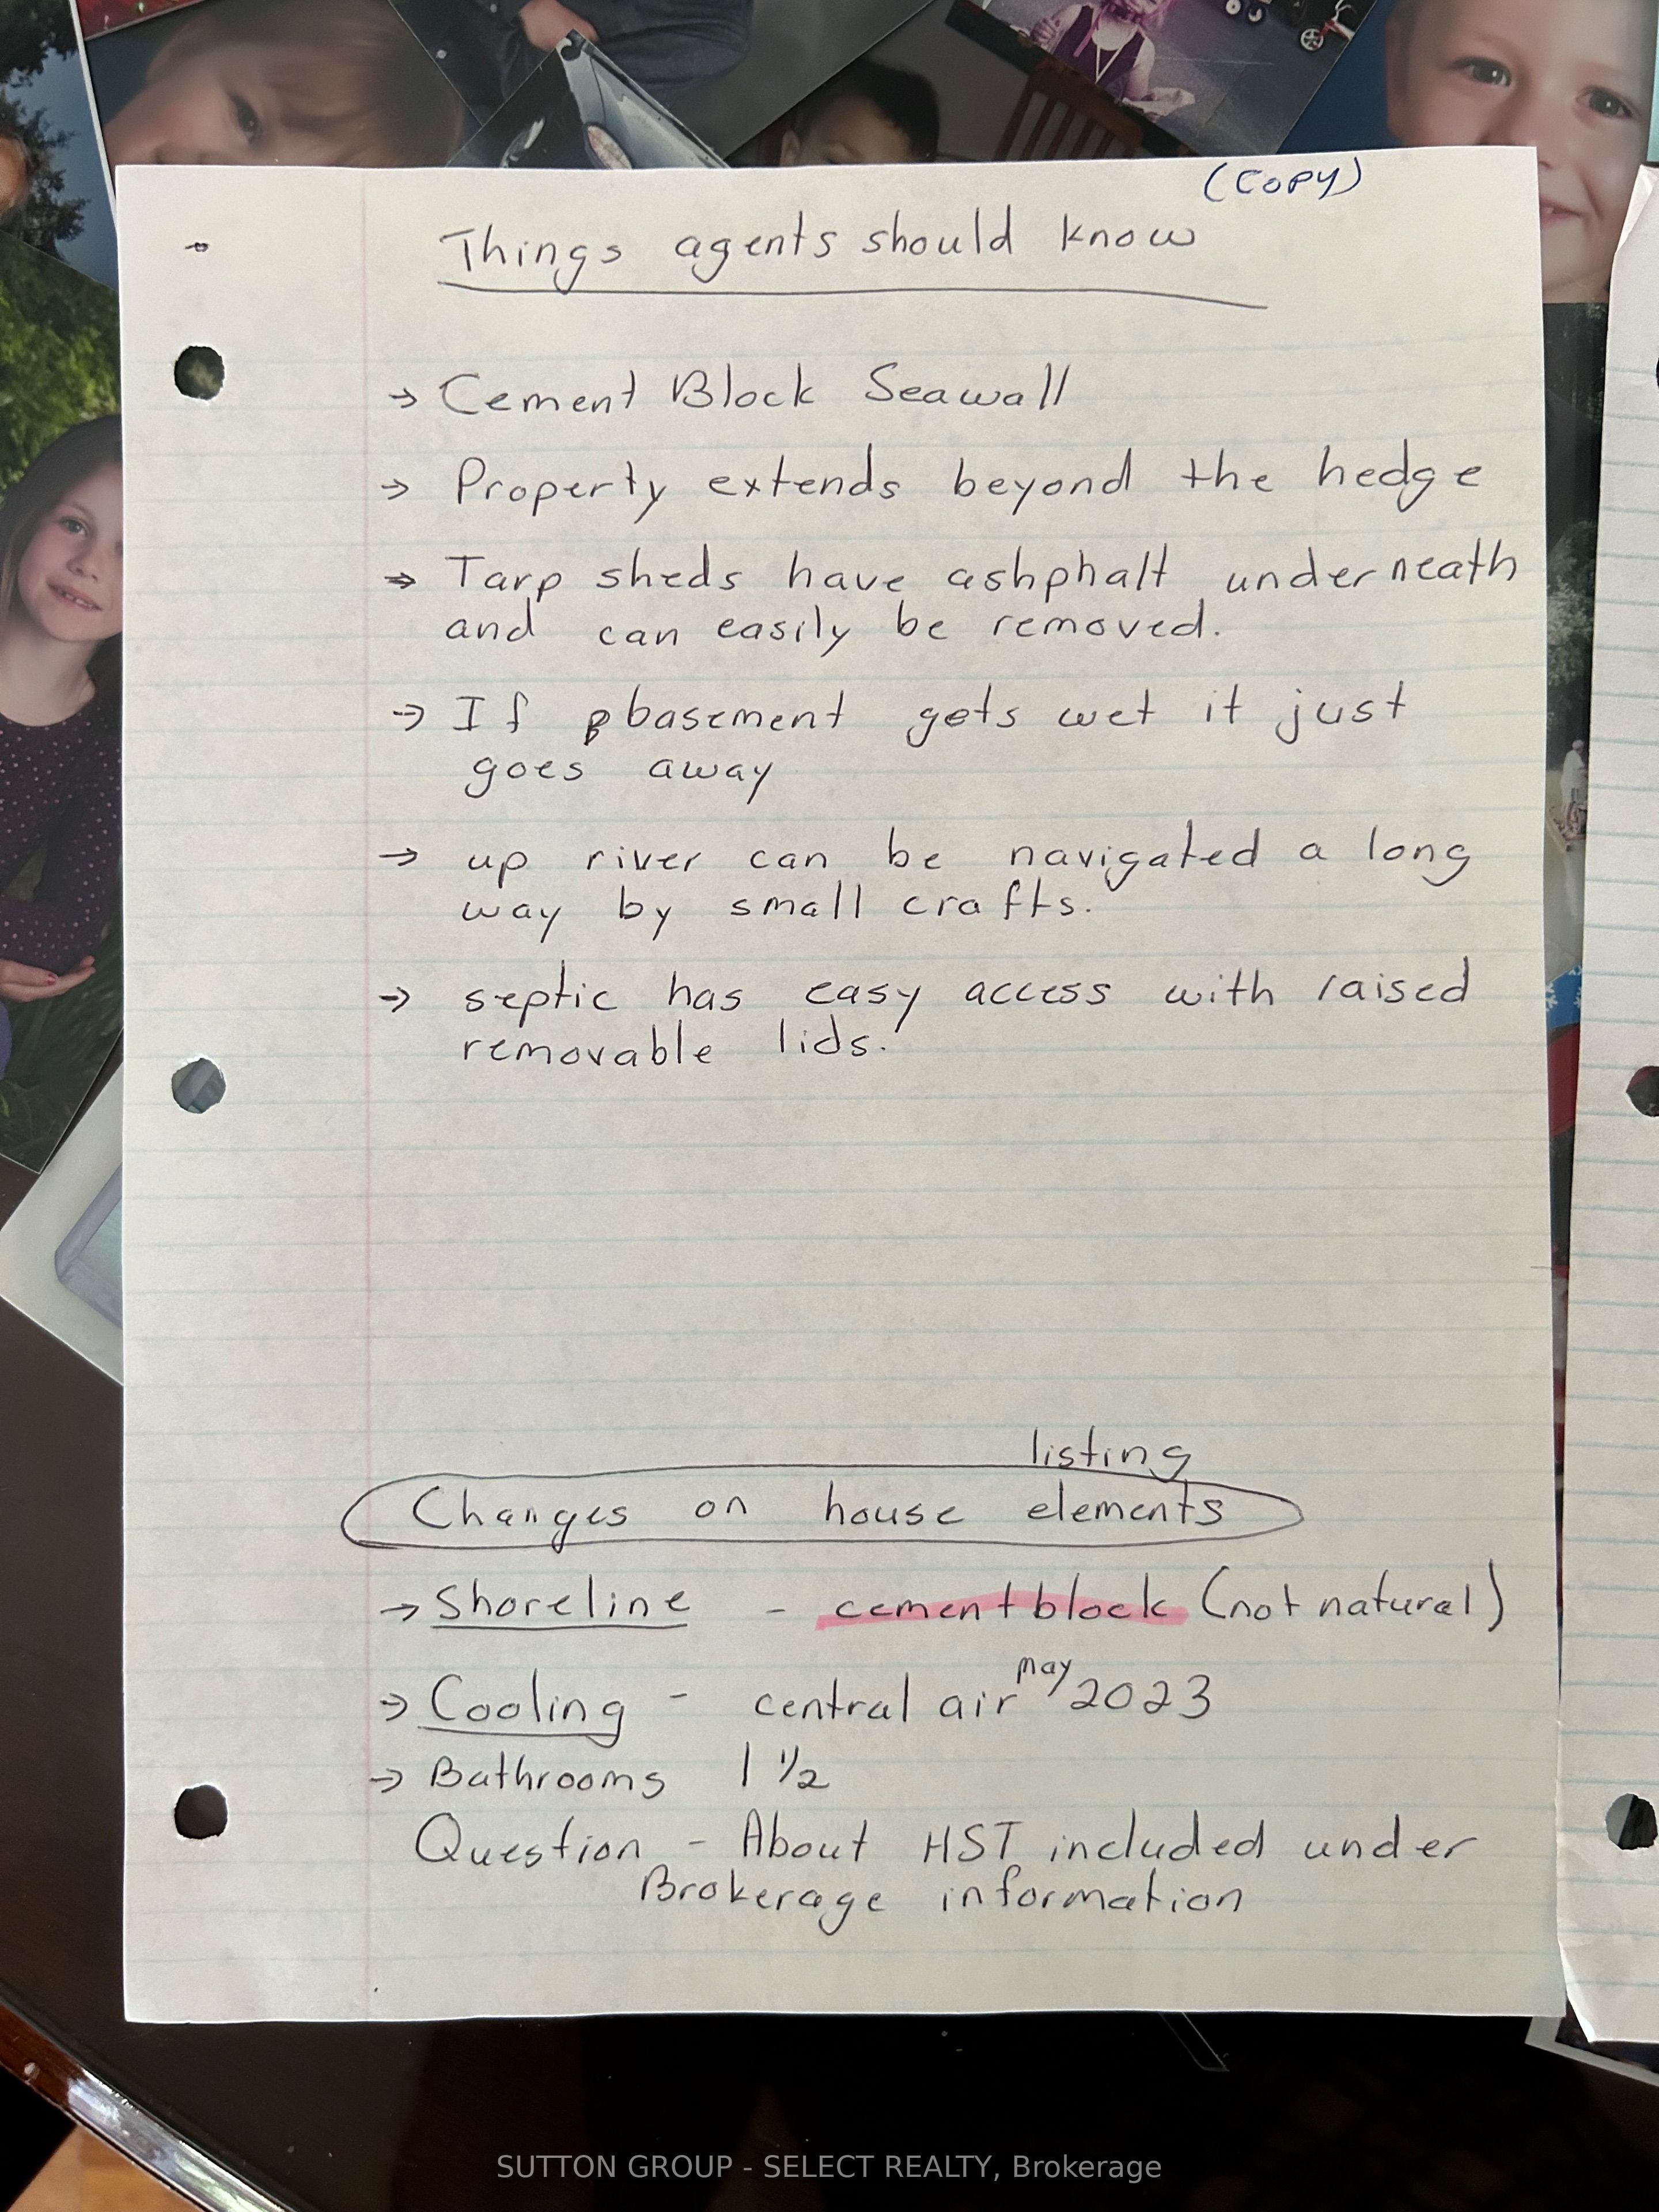 (COPY)
Things agents should know
→ Cement Block Seawall
→ Property extends beyond the hedge
→ Tarp sheds have ashphalt underneath
and can easily be removed.
→ If basement gets wet it just
goes away
→ up river can be navigated a long
way by small crafts.
→ septic has easy access with raised
removable lids.
listing
Changes on house elements
→ Shoreline - cement block (not natural)
→ Cooling - central air may 2023
→ Bathrooms 1 1/2
Question - About HST included under
Brokerage information
SUTTON GROUP - SELECT REALTY, Brokerage